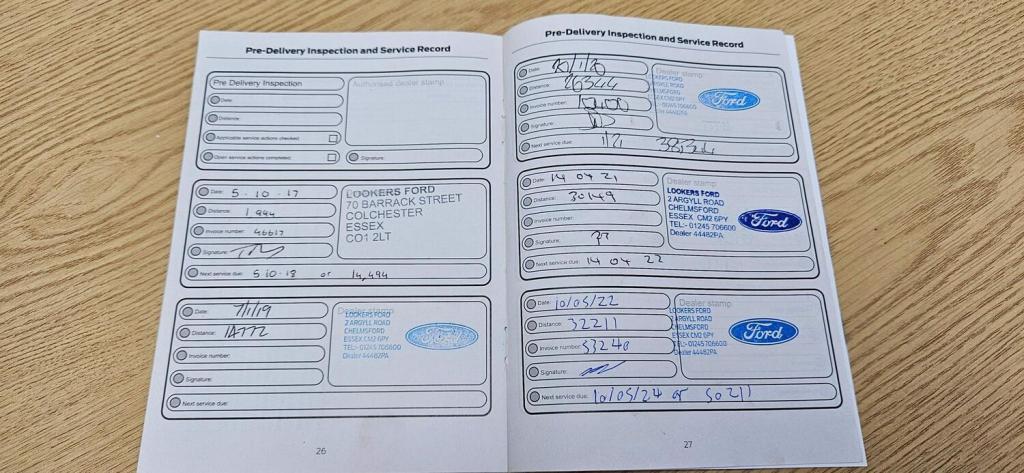 Pre-Delivery Inspection and Service Record
Pre Delivery Inspection
Date:
Distance:
Applicable service actions checked:
Open service actions completed:
Authorised dealer stamp
Signature:
Date: 5 - 10 - 17
Distance: 1 994
Invoice number: 46617
Signature:
LOOKERS FORD
70 BARRACK STREET
COLCHESTER
ESSEX
CO1 2LT
Next service due: 5 10 - 18 or 14,494
Date: 7/1/19
Distance:
Invoice number:
Signature:
Dealer stamp
LOOKERS FORD
2 ARGYLL ROAD
CHELMSFORD
ESSEX CM2 6PY
TEL:- 01245 706600
Dealer 44482PA
Ford
Next service due:
26
Pre-Delivery Inspection and Service Record
Date: 20/1/20
Distance: 26344
Invoice number:
Signature:
Dealer stamp
LOOKERS FORD
ARGYLL ROAD
CHELMSFORD
ESSEX CM2 6PY
TEL:- 01245 706600
Ford
Next service due:
Date: 14 04 21
Distance: 30149
Invoice number:
Signature:
Dealer stamp
LOOKERS FORD
2 ARGYLL ROAD
CHELMSFORD
ESSEX CM2 6PY
TEL:- 01245 706600
Dealer 44482PA
Ford
Next service due: 14 04 22
Date: 10/05/22
Distance: 32211
Invoice number: 53240
Signature:
Dealer stamp
LOOKERS FORD
2 ARGYLL ROAD
CHELMSFORD
ESSEX CM2 6PY
TEL:- 01245 706600
Dealer 44482PA
Ford
Next service due: 10/05/24 or 50211
27